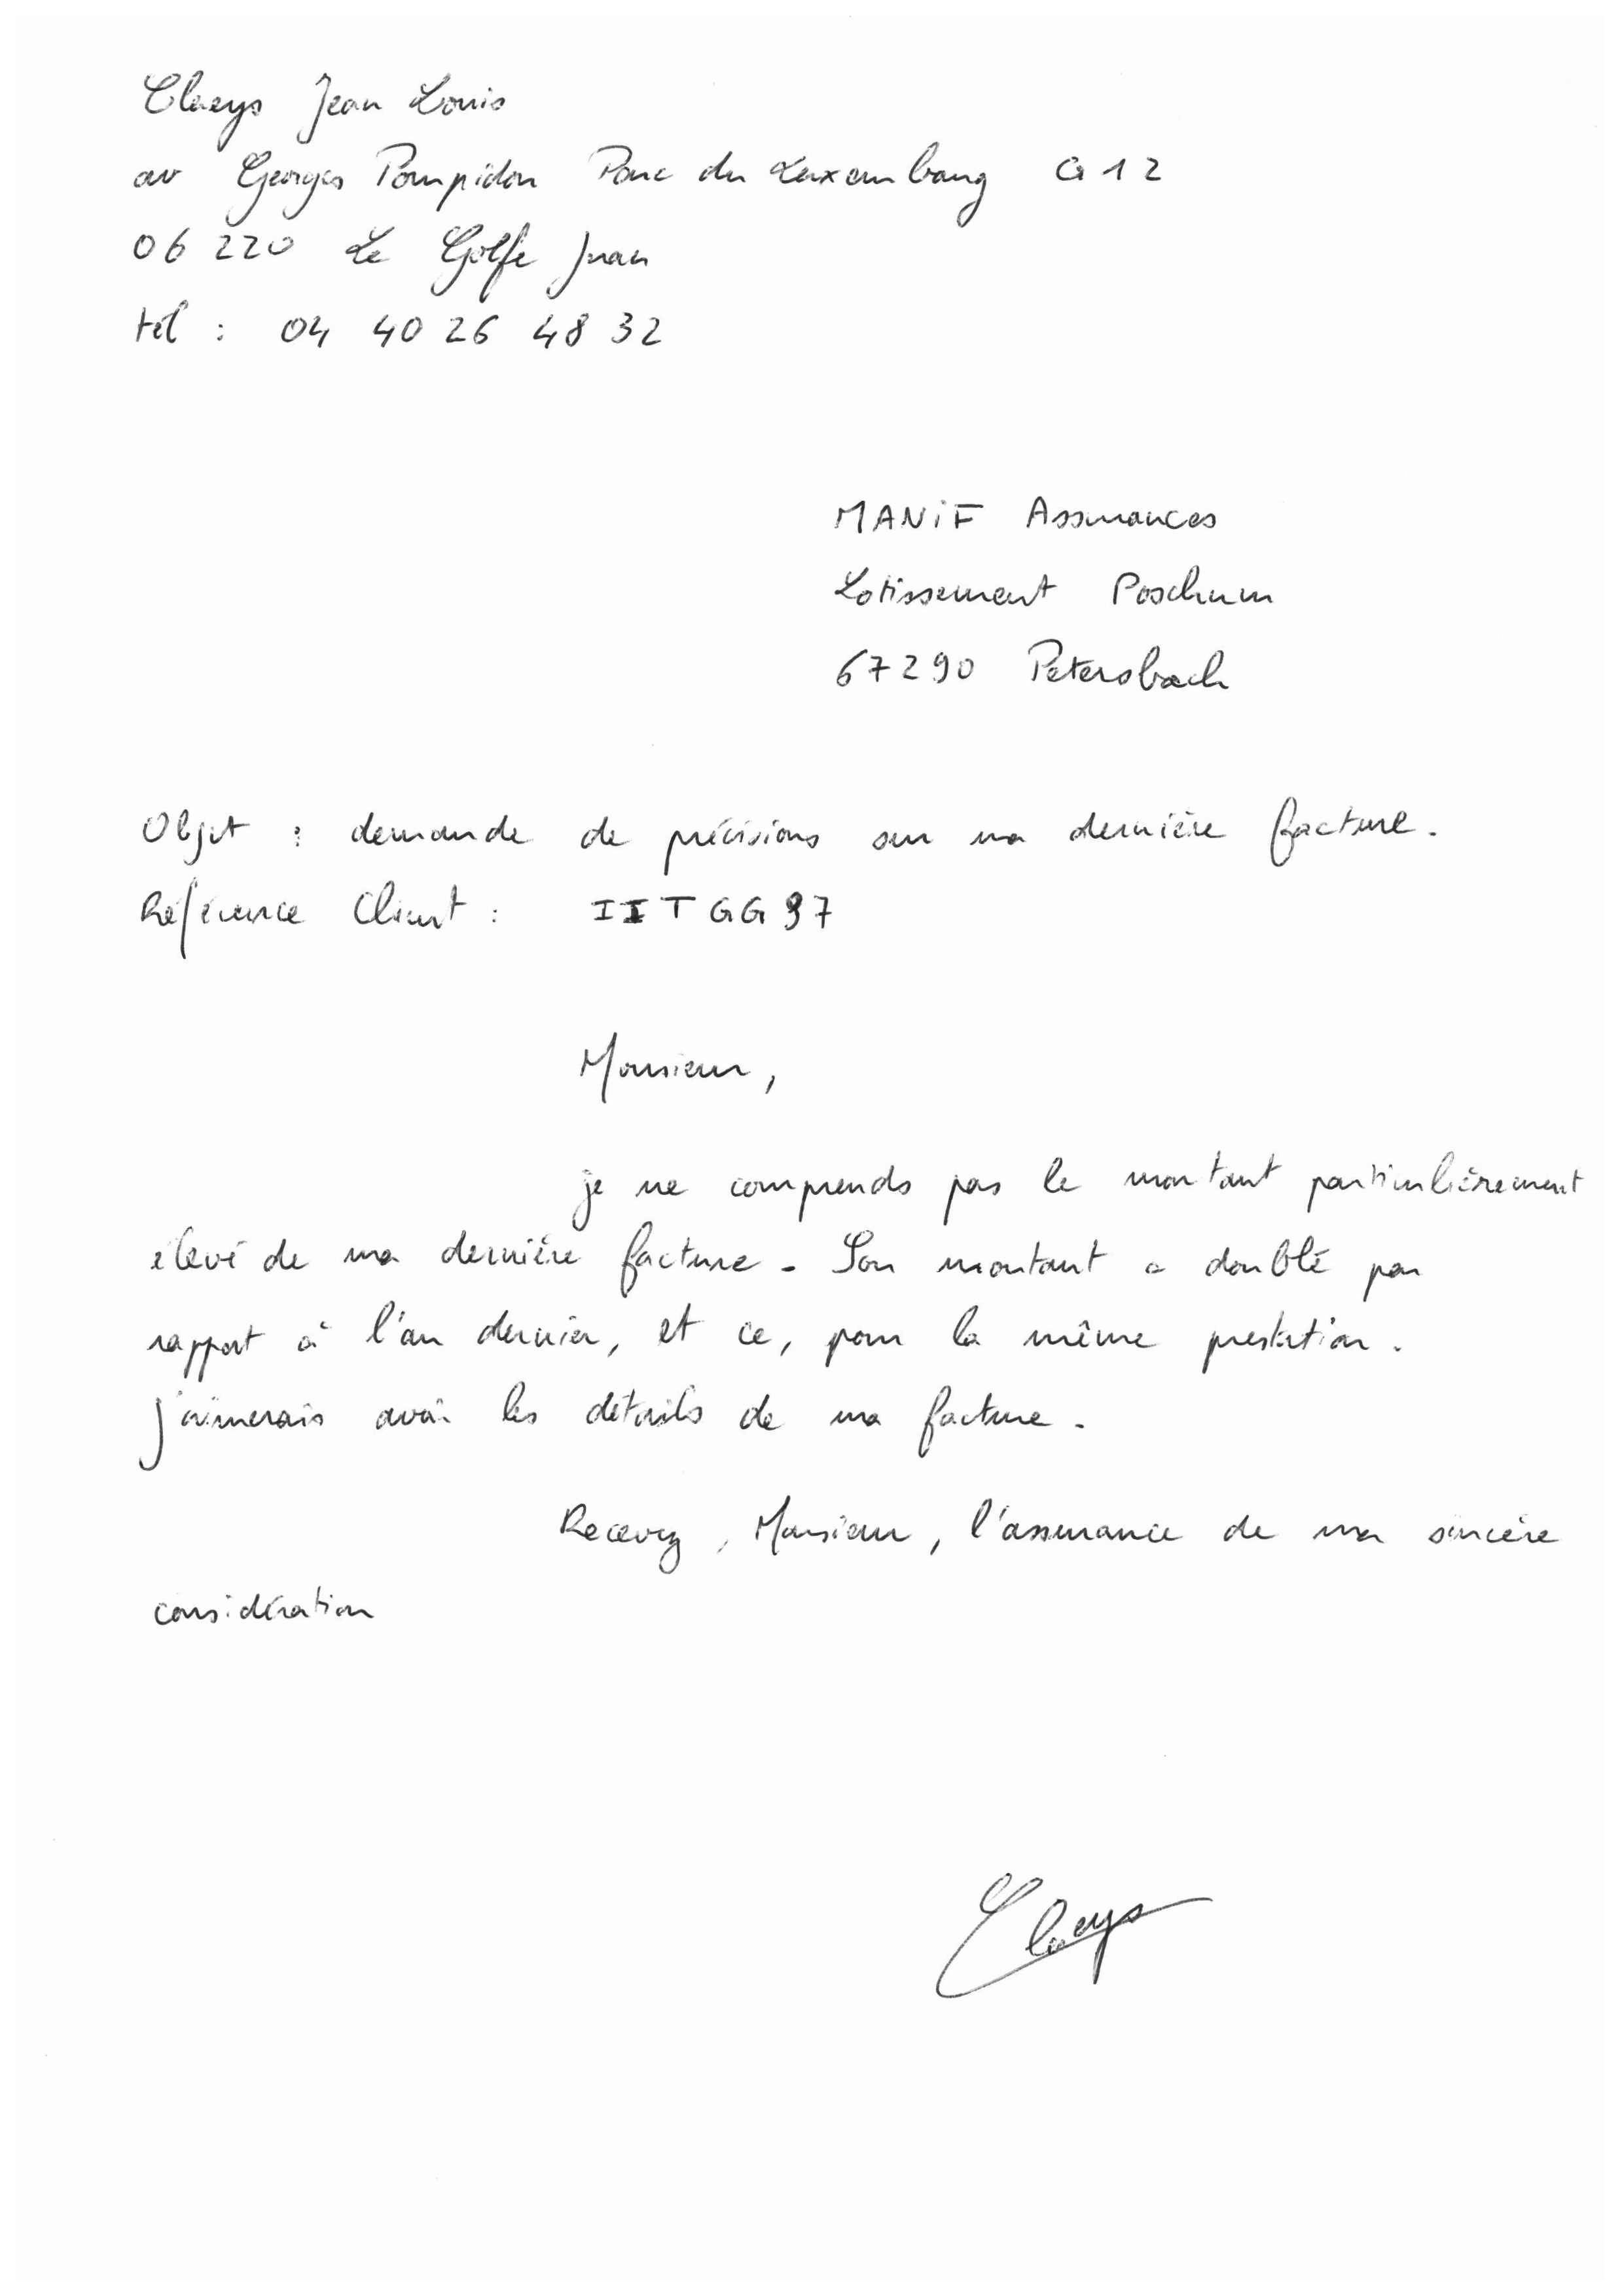 Claeys Jean Louis
av Georges Pompidou Parc du Luxembourg G12
06 220 Le Golfe Juan
tél : 04 40 26 48 32
MANiF Assurances
Lotissement Poschum
67290 Petersbach
Objet : demande de précisions sur ma dernière facture.
Référence Client : IITGG97
Monsieur,
je ne comprends pas le montant particulièrement
élevé de ma dernière facture. Son montant a doublé par
rapport à l'an dernier, et ce, pour la même prestation.
J'aimerais avoir les détails de ma facture.
Recevez, Monsieur, l'assurance de ma sincère
considération
Claeys